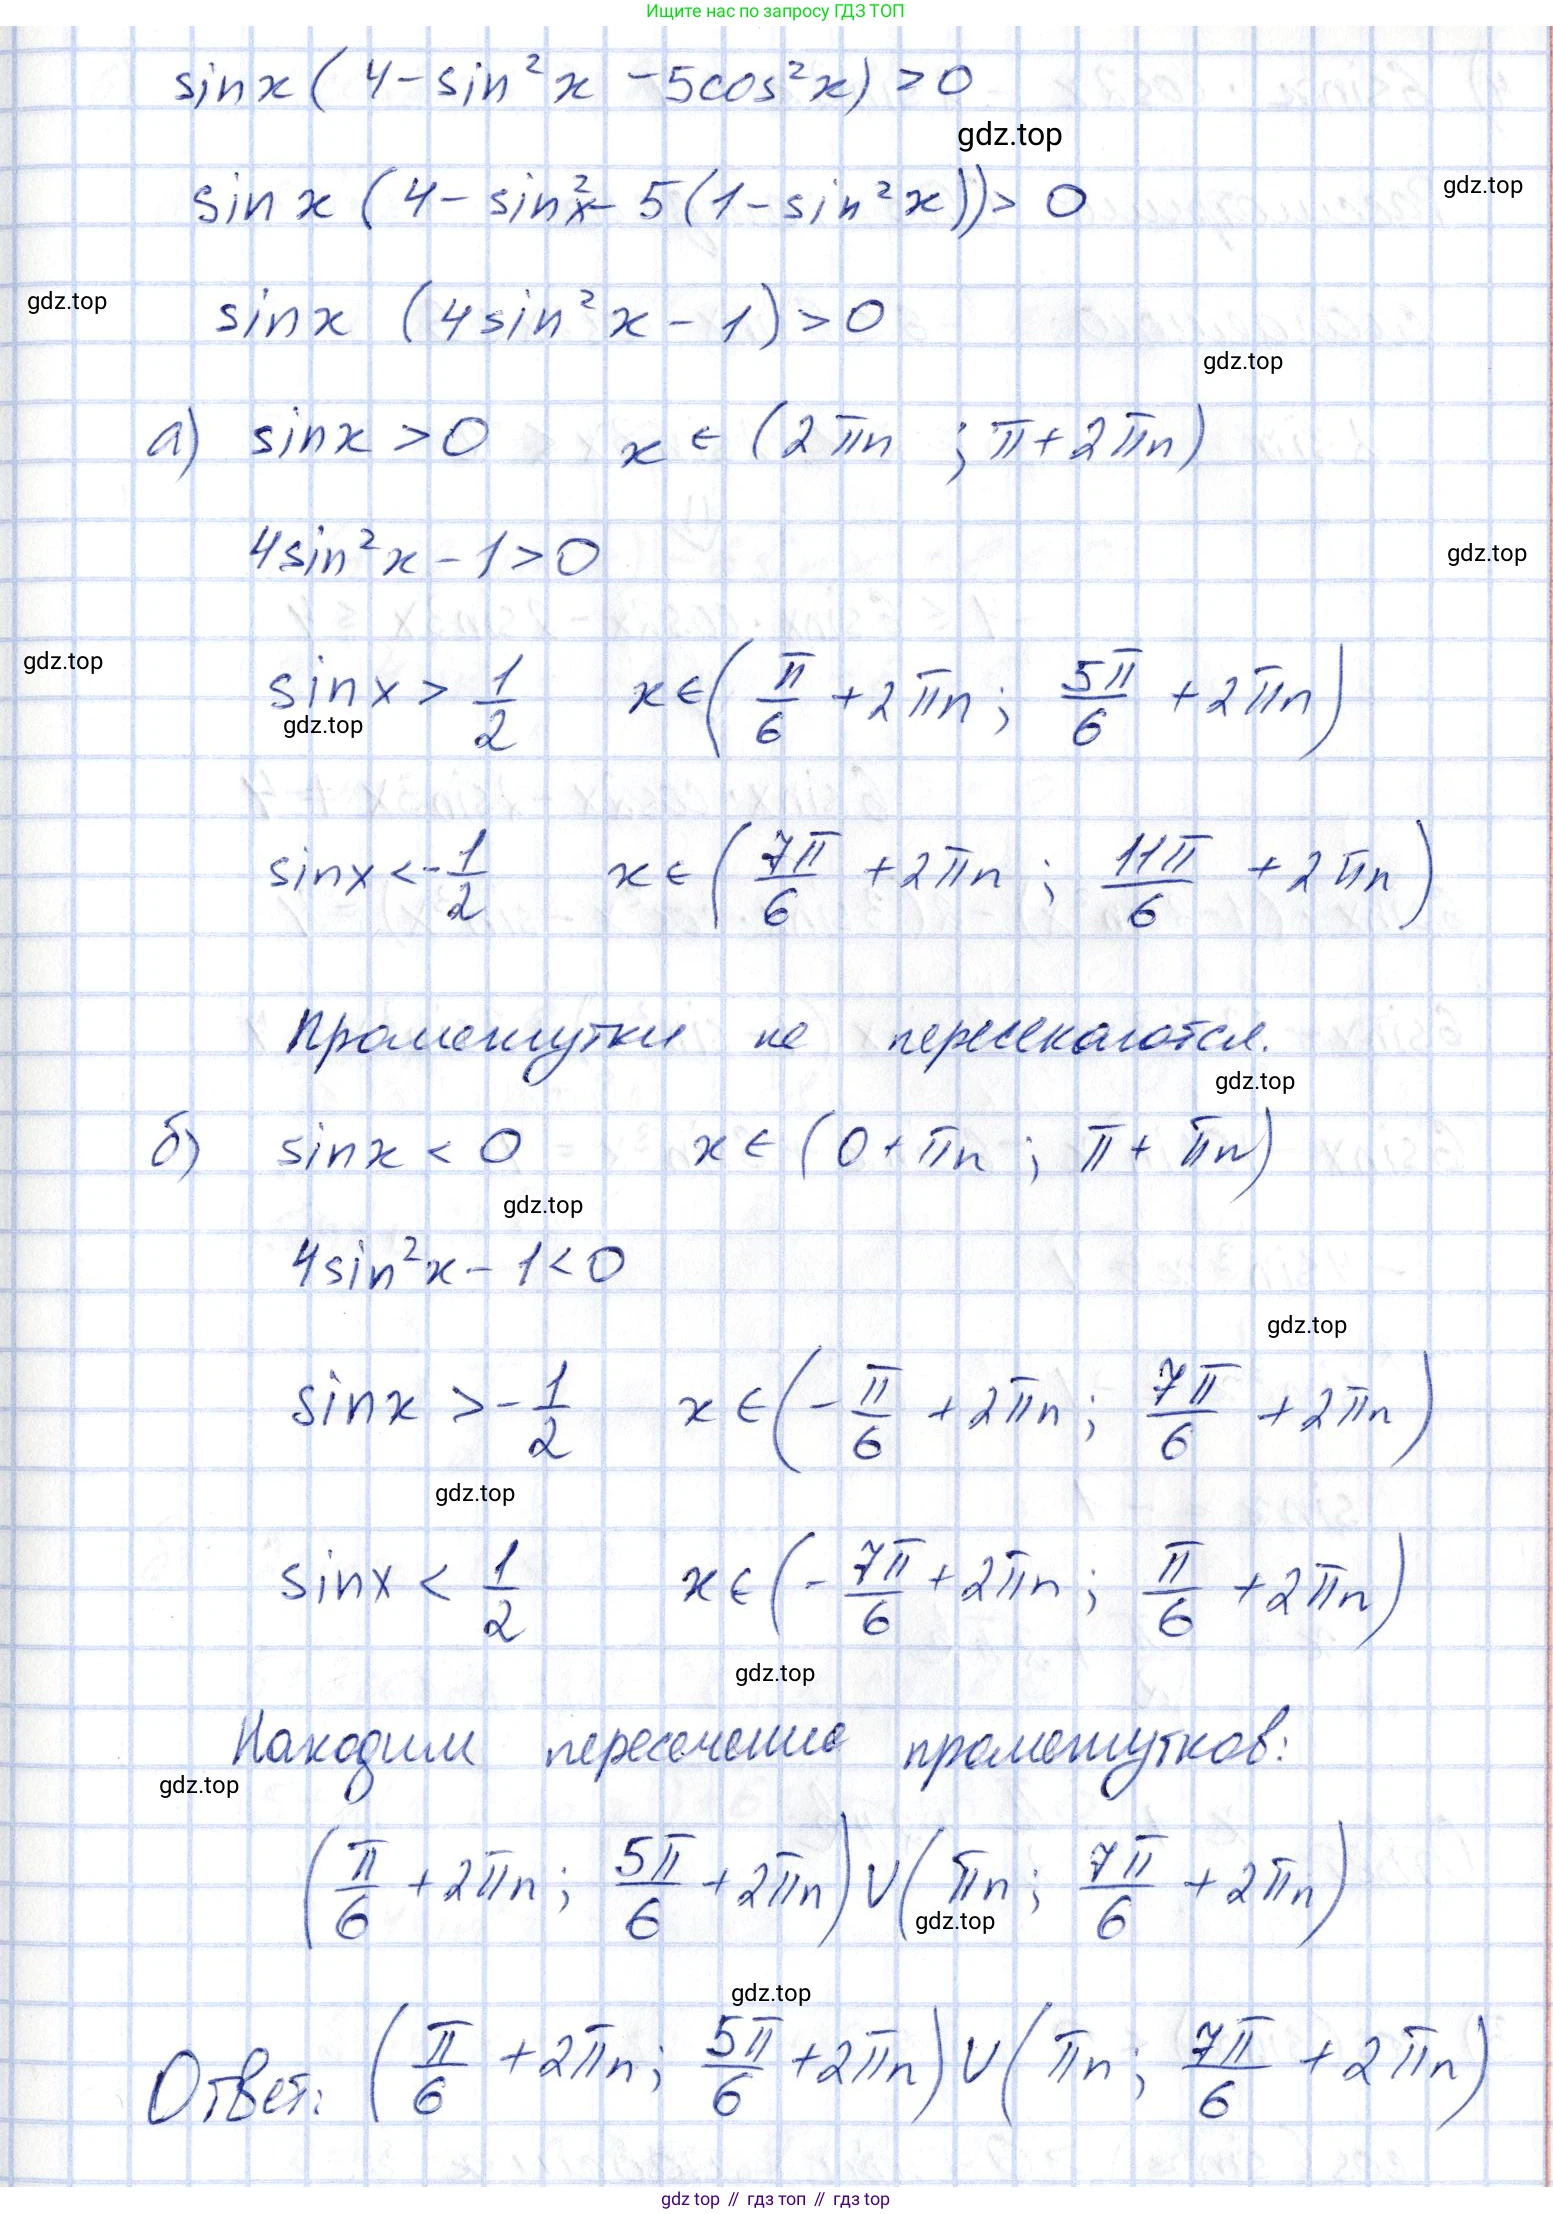 Ищите нас по запросу ГДЗ ТОП
sinx(4-sin²x -5cos²x)>0
gdz.top
sin x (4-sin²x-5(1-sin²x))>0
gdz.top
gdz.top
sinx (4sin²x-1)>0
gdz.top
а) sinx>0 x∈(2πn ; π+2πn)
4sin²x-1>0
gdz.top
gdz.top
sinx>1/2 x∈(π/6+2πn; 5π/6+2πn)
gdz.top
sinx<-1/2 x∈(7π/6+2πn; 11π/6+2πn)
Промежутки не пересекаются.
gdz.top
б) sinx<0 x∈(0+πn; π+πn)
gdz.top
4sin²x-1<0
gdz.top
sinx>-1/2 x∈(-π/6+2πn; 7π/6+2πn)
gdz.top
sinx<1/2 x∈(-7π/6+2πn; π/6+2πn)
gdz.top
Находим пересечение промежутков:
gdz.top
(π/6+2πn; 5π/6+2πn)∪(πn; 7π/6+2πn)
gdz.top
gdz.top
Ответ: (π/6+2πn; 5π/6+2πn)∪(πn; 7π/6+2πn)
gdz top // гдз топ // гdz top